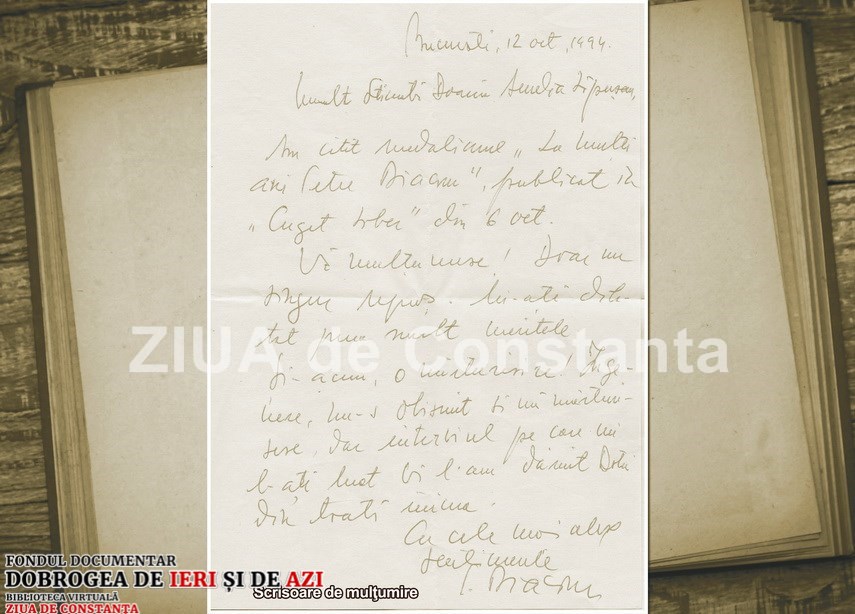 București, 12 oct. 1994.
Mult Stimată Doamnă Aurelia Lăpușan,
Am citit medalionul „La mulți
ani Petre Diaconu", publicat în
„Cuget liber" din 6 oct.
Vă mulțumesc! Doar un
singur reproș. Mi-ați
prea mult meritele
Și-acum, o mărturisire!
nu-s obișnuit să mă
dar interviul pe care mi
l-ați luat Vi l-am dăruit Dvs
din toată inima.
Cu cele mai alese
sentimente
P. Diaconu
ZIUA de Constanta
FONDUL DOCUMENTAR
DOBROGEA DE IERI ȘI DE AZI
BIBLIOTECA VIRTUALĂ
ZIUA DE CONSTANTA
Scrisoare de mulţumire